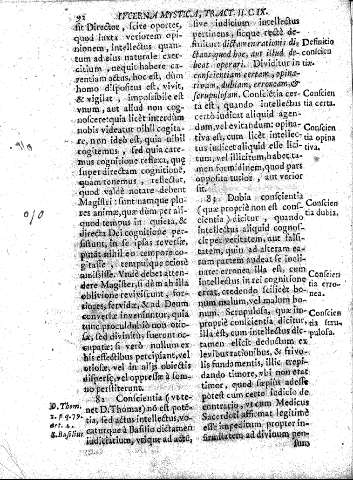 92 LVCERNA MYSTICA, TRACT. II. C. IX.
sit Director, scire oportet,
quod juxta veriorem opi-
nionem, intellectus quan-
tum ad ejus naturale exer-
citium, nequit habere ca-
rentiam actus, hoc est, dùm
homo dispositus est, vivit,
& vigilat, impossibile est
vnum, aut aliud non cog-
noscere: quia licèt interdùm
nobis videatur nihil cogita-
re, non ideò est, quia nihil
cogitemus, sed quia care-
mus cognitione reflexa, quę
super directam cognitionẽ,
quam tenemus, reflectat,
quod valdè notare debent
Magistri: sunt namque plu-
res animæ, quæ dùm per ali-
quod tempus in quieta, &
directa Dei cognitione per-
sistunt, in se ipsas reversæ,
putãt nihil eo tempore co-
gitasse, tempusque otiosè
amisisse. Vndè debet atten-
dere Magister, si dùm ab illa
oblivione reviviscunt, for-
tiores, fervidæ, & ad Deum
conversæ inveniuntur, quia
tunc proculdubio non otio-
sæ, sed divinitùs fuerunt oc-
cupatæ: si verò nullum ex
his effectibus percipiunt, vel
otiosæ, vel in aliis obiectis
dispersæ, vel oppressæ à som-
no perstiterunt.
82 Conscientia (vt te-
net D. Thomas) nõ est potẽ-
tia, sed actus intellectus, vo-
caturque à Basilio dictamen
iudicatium, vtique ad actũ,
D. Thom.
1. p. q. 79.
art. 2.
S. Basilius
sive iudicium intellectus
pertinens, sicque rectè de-
finitur: dictamen rationis di-
ctans quod hoc, aut illud de-
beat operari. Dividitur in
conscientiam certam, opina-
tivam, dubiam, erroneam, &
scrupulosam. Conscientia cer-
ta est, quando intellectus
certò iudicat aliquid agen-
dum, vel evitandum: opina-
tiva est, cum licèt intellec-
tus iudicet aliquid esse lici-
tum, vel illicitum, habet ta-
men formidinem, quod pars
opposita tutior, aut verior
sit.
83 Dubia conscientia
(quæ propriè non est cons-
cientia) dicitur, quando
intellectus aliquid cognos-
cit per veritatem, aut falsi-
tatem, quin ad alteram ea-
rum partem audeat se incli-
nare: erronea illa est, cum
intellectus in rei cognitione
errat, credendo scilicet bo-
num malum, vel malum bo-
num. Scrupulosa, quæ im-
propriè conscientia dicitur,
illa est, cum intellectus dic-
tamen elicit deductum ex
levibus rationibus, & frivo-
lis fundamentis, illic trepi-
dando timore, vbi non erat
timor, quod sæpius adesse
potest cum certo iudicio de
contrario, vt cum Medicus
Sacerdoti affirmat legitimè
esse impeditum propter in-
firmitatem ad divinum pen-
sum
Definitio
conscientię
Conscien
tia certa.
Conscien
tia opina
tiva.
Conscien
tia dubia.
Conscien
tia erro-
nea.
Conscien
tia scru-
pulosa.